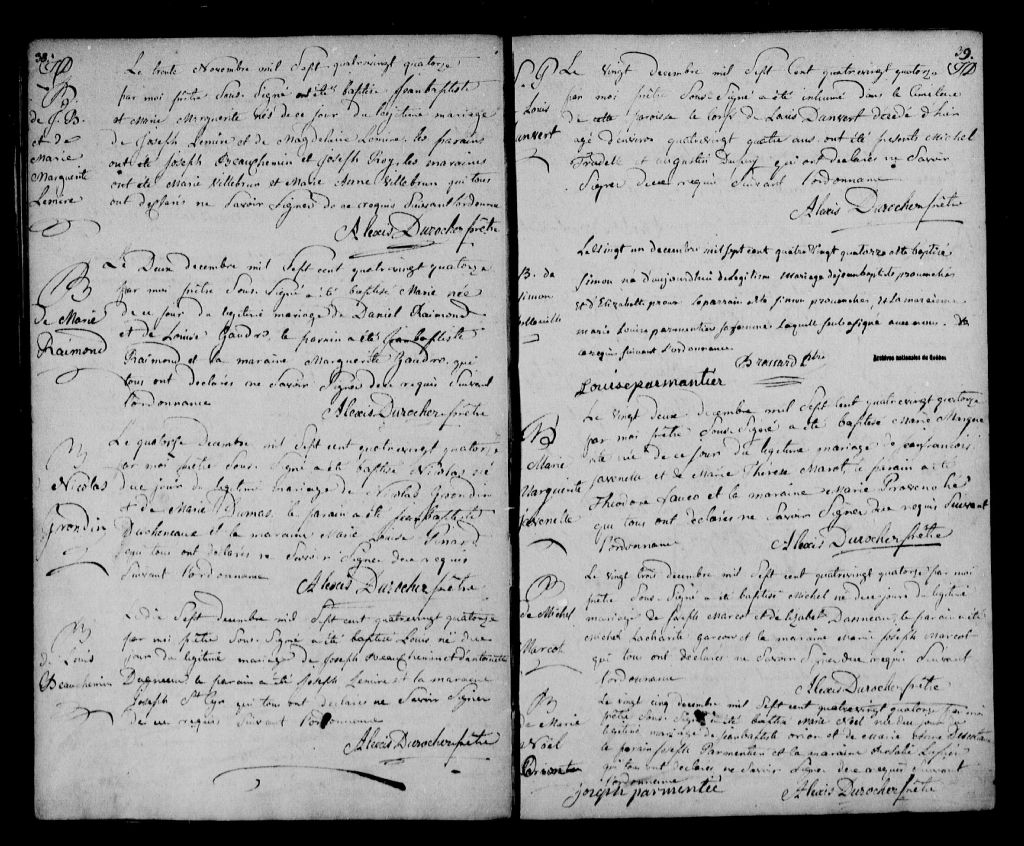 38.
B.
de J. B.
et de
Marie
Marguerite
Lemire
Le trente Novembre mil Sept quatrevingt quatorze
par moi prêtre Sous Signé ont étés baptisé Jeanbaptiste
et Marie Marguerite nés de ce jour du légitime mariage
de Joseph Lemire et de Magdelaine Lemire, les parains
ont été Joseph Beauchemin et Joseph Roy, les maraines
ont été Marie Villebrun et Marie Anne Villebrun qui tous
ont declarés ne Savoir Signer de ce requis Suivant l'ordonnance
Alexis Durocher prêtre
B
de Marie
Raimond
Le Deux decembre mil Sept cent quatrevingt quatorze
par moi prêtre Sous Signé a été baptisé Marie née
de ce jour du legitime mariage de Daniel Raimond
et de Louise Gaudre, le parain a été Jeanbaptiste
Raimond et la maraine Marguerite Gaudre, qui
tous ont declarés ne Savoir Signer de ce requis Suivant
l'ordonnance
Alexis Durocher prêtre
B
Nicolas
Grondin
Le quatorze decembre mil Sept cent quatrevingt quatorze
par moi prêtre Sous Signé a été baptisé Nicolas né
du ce jour du legitime mariage de Nicolas Grondin
et de Marie Dumas, le parain a été Jeanbaptiste
Ducheneaux et la maraine Marie Louise Pinard
qui tous ont declarés ne Savoir Signer de ce requis
Suivant l'ordonnance
Alexis Durocher prêtre
B
de Louis
Beauchemin
Le dix Sept decembre mil Sept cent quatrevingt quatorze
par moi prêtre Sous Signé a été baptisé Louis né de ce
jour du legitime mariage de Joseph Beauchemin et d'antoinette
Dugneau, le parain a été Joseph Lemire et la maraine
Joseph St Cyr qui tous ont declarés ne Savoir Signer
de ce requis Suivant l'ordonnance
Alexis Durocher prêtre
39.
S. G
Louis
Danvert
Le vingt decembre mil Sept Cent quatrevingt quatorze
par moi prêtre Sous Signé a été inhumé dans le Cimetiere
de cette paroisse le corps de Louis Danvert decedé d'hier
agé d'environ quatrevingt quatre ans, ont été presents Michel
Pradelle et augustin Dupuy qui ont declarés ne Savoir
Signer de ce requis Suivant l'ordonnance
Alexis Durocher prêtre
B. de
Simon
Le Vingt un decembre mil sept cent quatre Vingt quatorze a été baptisé
Simon né d'aujourdhui du legitime Mariage de jeanbaptiste prouvencher
et d'Elizabette le parrain a été Simon prouvencher et La mareinne
marie Louise parmentier sa femme Laquelle seule a signé avec nous. De
ce requis suivant L'ordonnance.
Brassard Ptre
Louise parmantier
Archives nationales du Québec
B
Marie
Marguerite
Javenelle
Le vingt deux decembre mil Sept Cent quatrevingt quatorze
par moi prêtre Sous Signé a été baptisé Marie Margue
rite née de ce jour du legitime mariage de Jeanfrancois
Javenelle et de Marie Therese Marot, le parain a été
Théodore Fauco et la maraine Marie Provenché
qui tous ont declarés ne Savoir Signer de ce requis Suivant
l'ordonnance
Alexis Durocher prêtre
B
de Michel
Marcot
Le vingt trois decembre mil Sept Cent quatrevingt quatorze par moi
prêtre Sous Signé a été baptisé Michel né de ce jour du legitime
mariage de Joseph Marcot et de Elizabet Dasneau, le parain a été
Michel Lacharité garcon et la maraine Marie Joseph Marcot
qui tous ont declarés ne Savoir Signer de ce requis Suivant
l'ordonnance
Alexis Durocher prêtre
B
de Marie
Noël
Le vingt cinq decembre mil Sept cent quatrevingt quatorze par moi
prêtre Sous Signé a été baptisé Marie Noël née du jour du
legitime mariage de Jeanbaptiste orion et de Marie
le parain Joseph Parmentier et la maraine
qui tous ont declarés ne Savoir Signer de ce requis Suivant
l'ordonnance
joseph parmentié
Alexis Durocher prêtre